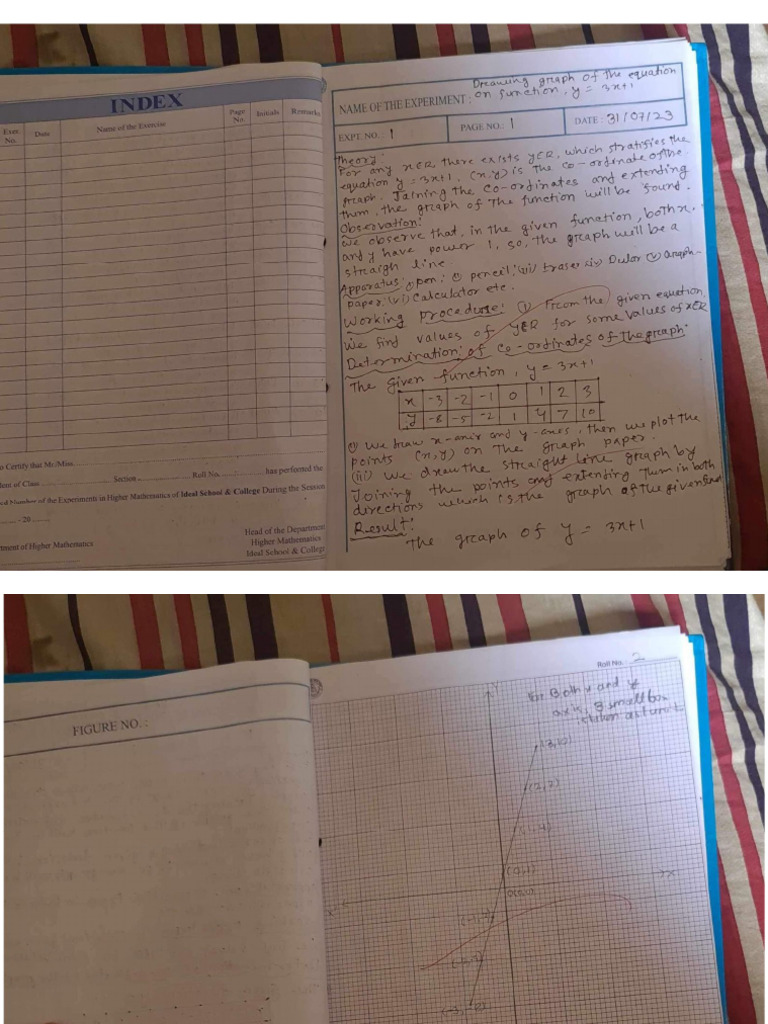 INDEX
Exer. No.
Date
Name of the Exercise
Page No.
Initials
Remarks
to Certify that Mr./Miss.
dent of Class
Section
Roll No.
has performed the
ed Number of the Experiments in Higher Mathematics of Ideal School & College During the Session
- 20
Head of the Department
Higher Mathematics
Ideal School & College
tment of Higher Mathematics
NAME OF THE EXPERIMENT : Drawing graph of the equation
on function, y = 3x+1
EXPT. NO. : 1
PAGE NO.: 1
DATE : 31/07/23
Theory:
For any x∈R there exists y∈R, which stratifies the
equation y = 3x+1. (x,y) is the co-ordinate of the
graph. Joining the co-ordinates and extending
them, the graph of the function will be found.
Observation:
We observe that, in the given function, both x
and y have power 1, so, the graph will be a
straigh line.
Apparatus: pen; (ii) pencil; (iii) Eraser (iv) (v) Graph
paper (vi) Calculator etc.
Working procedure: (i) From the given equation,
We find values of y∈R for some values of x∈R
Determination of co-ordinates of The graph:
The given function, y = 3x+1
x -3 -2 -1 0 1 2 3
y -8 -5 -2 1 4 7 10
we draw x-axir and y-axes, then we plot the
points (x,y) on The graph paper.
(iii) We draw the straight line graph by
Joining the points and extending Them in both
directions which is the graph of the given
Result:
The graph of y = 3x+1
FIGURE NO. :
Roll No. 2
Y
For Both x and y
axis, 3 small box
as 1 unit
(3,10)
(2,7)
(1,4)
(0,1)
X
O(0,0)
X'